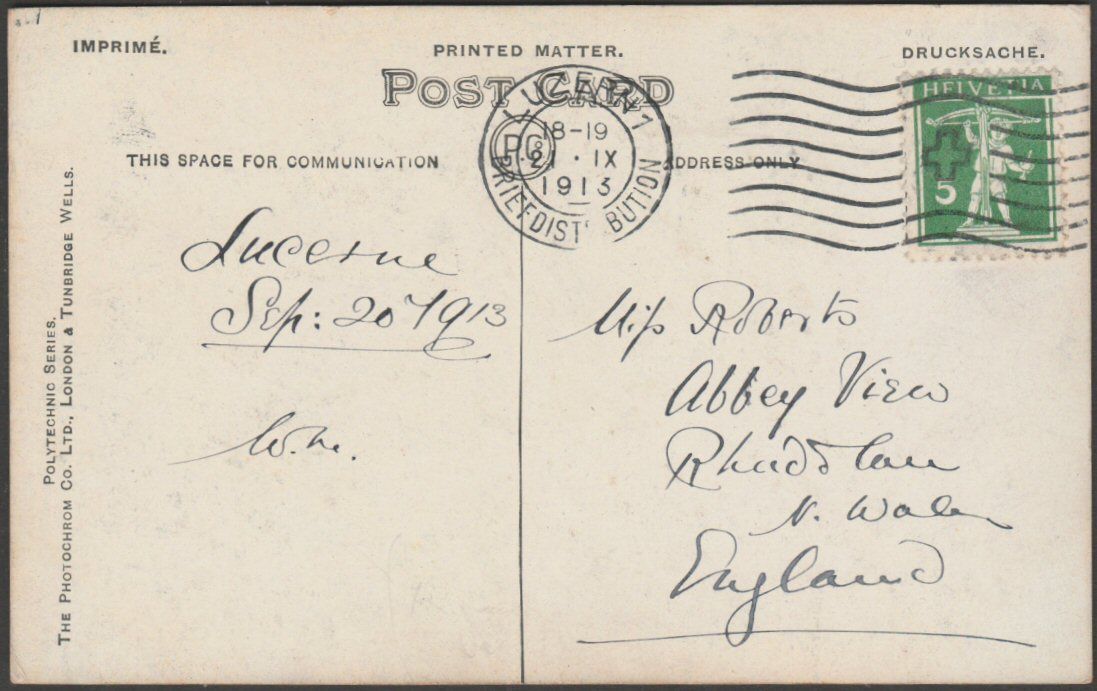 IMPRIMÉ.
PRINTED MATTER.
DRUCKSACHE.
POST CARD
THIS SPACE FOR COMMUNICATION
ADDRESS ONLY
LUZERN 1
18-19
21 · IX
1913
BRIEFDIST BUTION
PC
HELVETIA
5
Lucerne
Sep: 20 1913
W.M.
Miss Roberts
Abbey View
Rhuddlan
N. Wales
England
POLYTECHNIC SERIES.
THE PHOTOCHROM CO. LTD., LONDON & TUNBRIDGE WELLS.